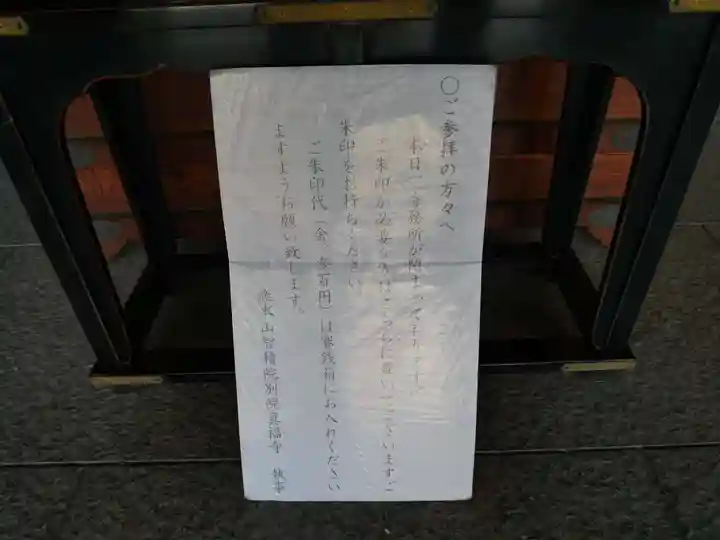 〇ご参拝の方々へ
本日、寺務所が閉まっております。
ご朱印が必要な方はこちらに置いてございますご
朱印をお持ちください。
ご朱印代(金、参百円)は賽銭箱にお入れください
ますようお願い致します。
山智積院別院真福寺 執事